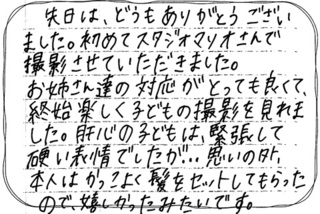 先日は、どうもありがとうござい
ました。初めてスタジオマリオさんで
撮影させていただきました。
お姉さん達の対応がとっても良くて、
終始楽しく子どもの撮影を見れま
した。肝心の子どもは、緊張して
硬い表情でしたが…思いの外、
本人はかっこよく髪をセットしてもらった
ので、嬉しかったみたいです。